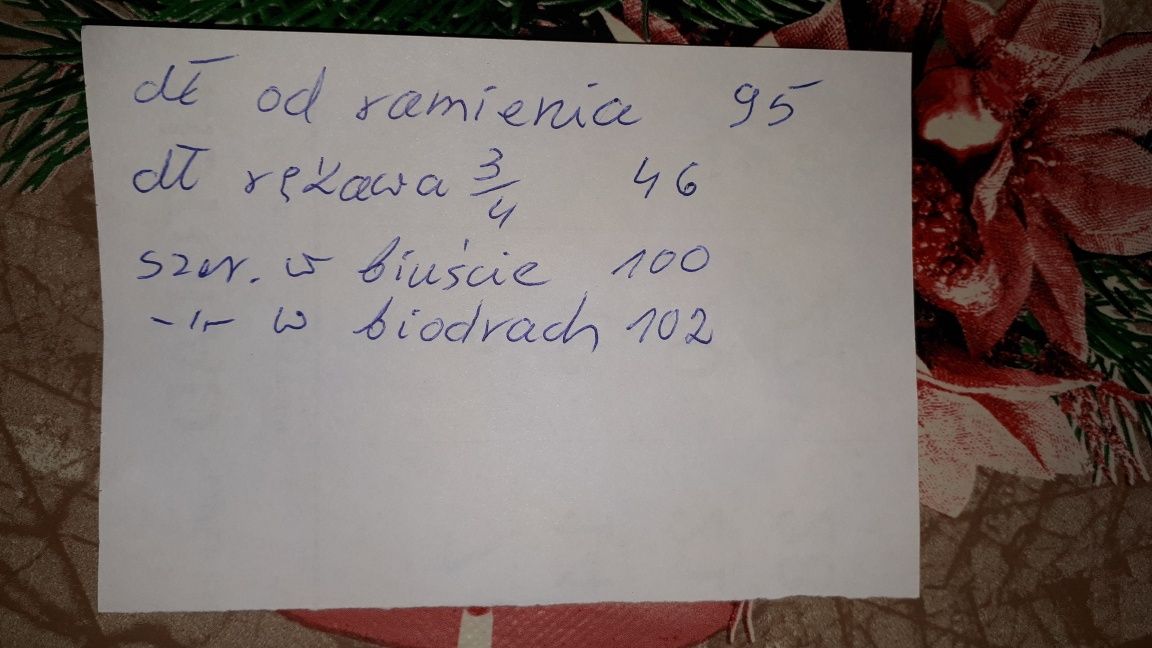 dł od ramienia 95
dł rękawa 3/4 46
szer. w biuście 100
-11- w biodrach 102